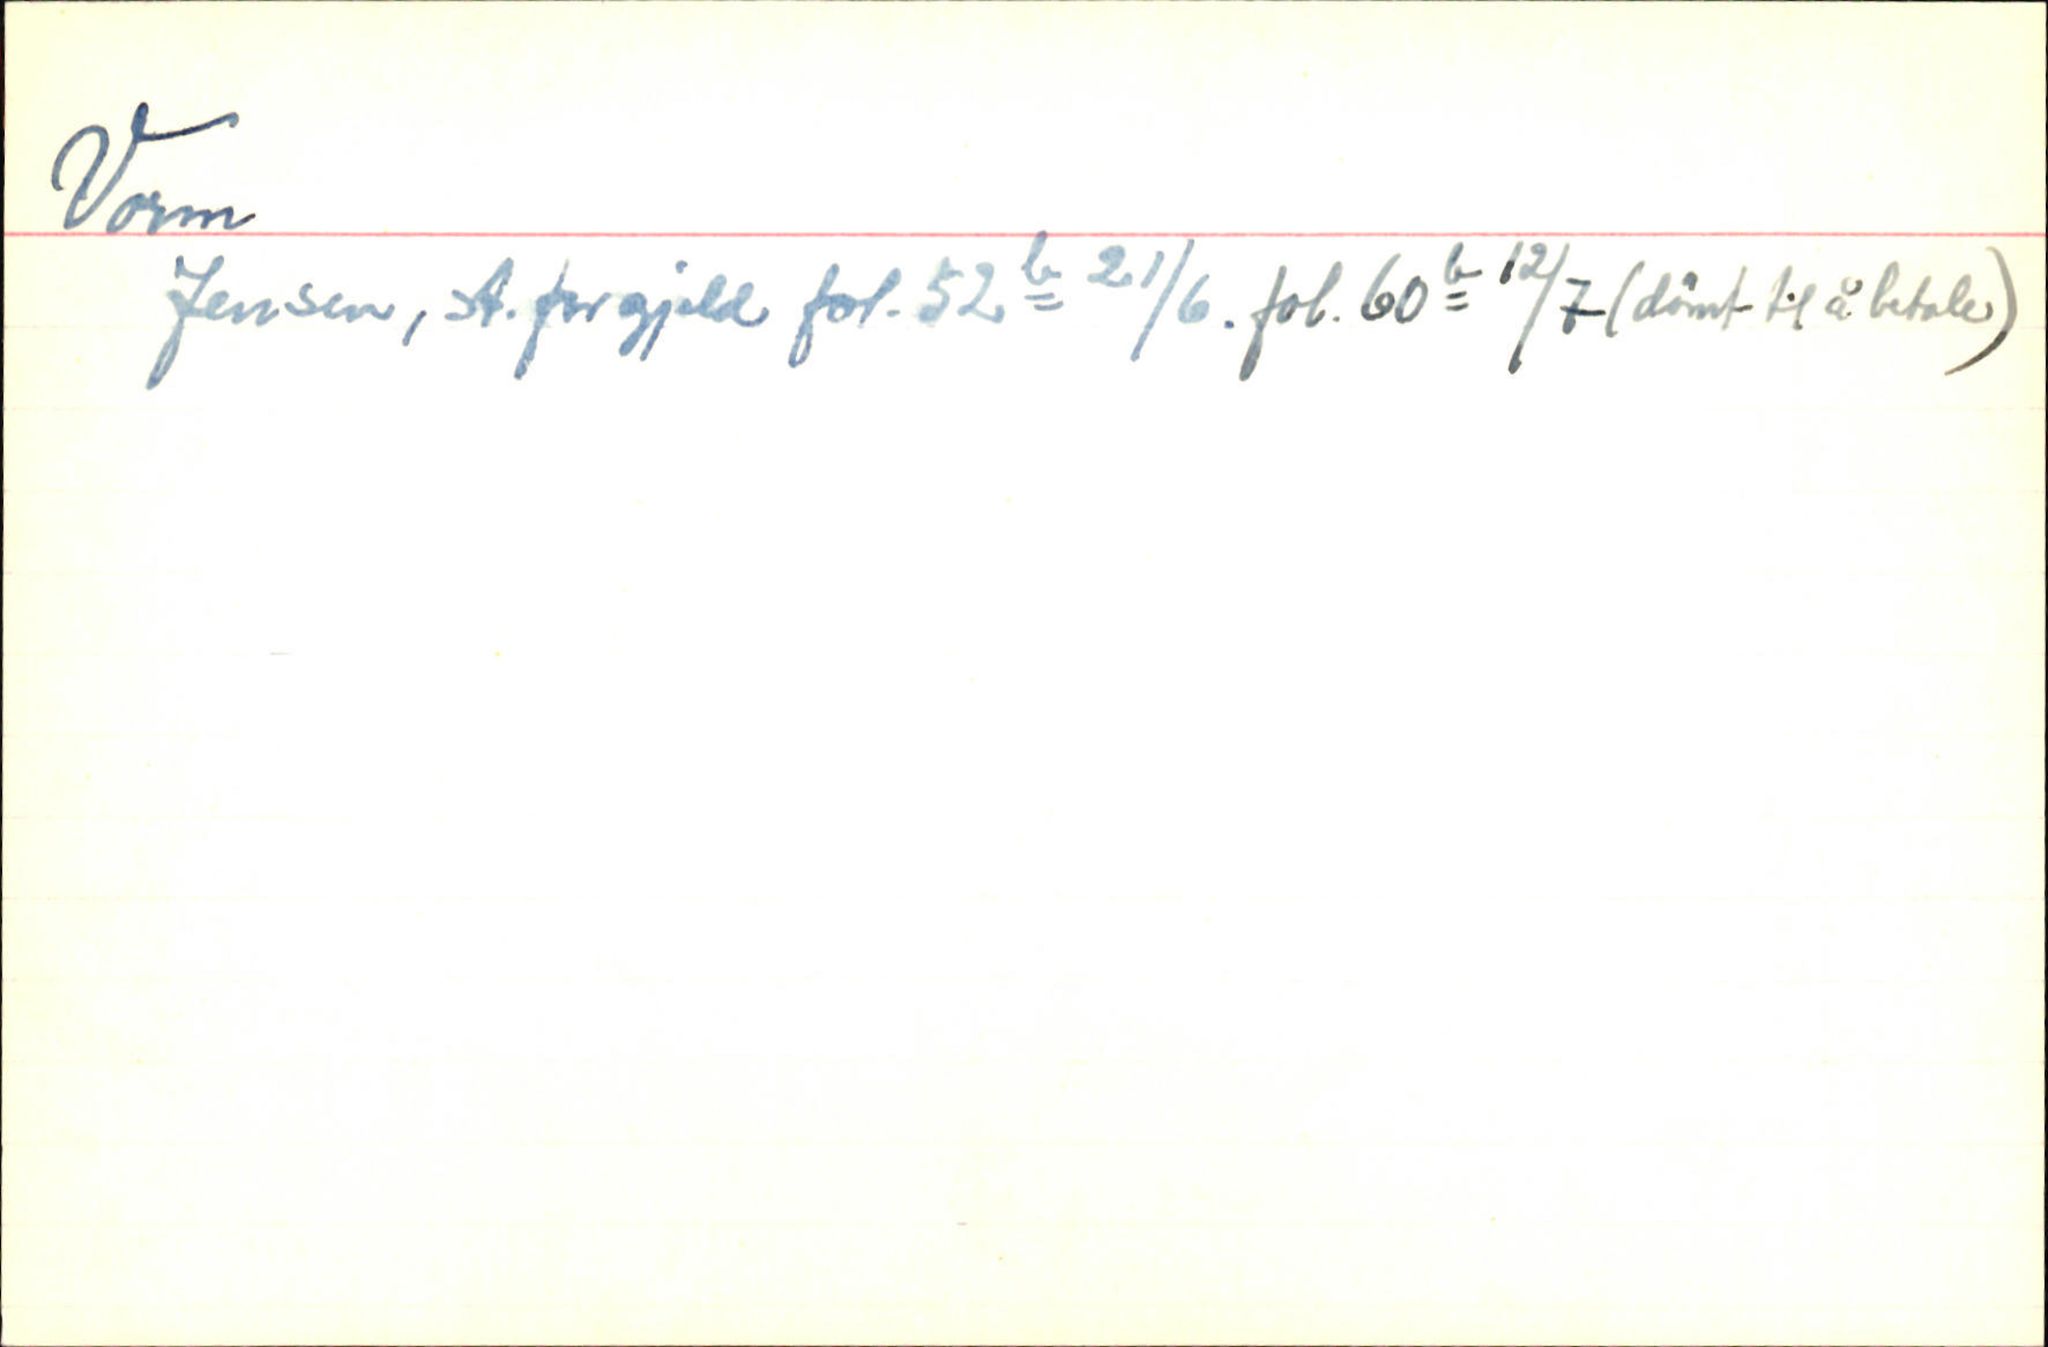 Vorm
Jensen, St. for gjeld fol. 52b 21/6. fol. 60b 12/7 (dømt til å betale)